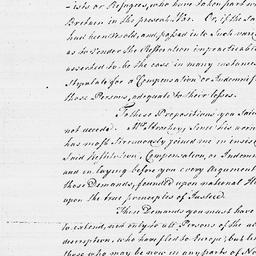 -ists or Refugees, who have taken part with
Britain in the present War. Or, if the
had been Sold, and passed into such
as to render the Restoration impracticable
asserted to be the case in many instances
stipulate for a Compensation or Indemnif
those Persons, adequate to their losses.
To these Propositions you said
not accede. Mr. Strachey, since his
has most Strenuously joined me in insist
said Restitution, Compensation, or Indemn
and in laying before you every Argument
those Demands, founded upon national
upon the true principles of Justice.
These Demands you must have
to extend, not only to all Persons of the
description, who have fled to Europe, but
those who may be now in any parts of No